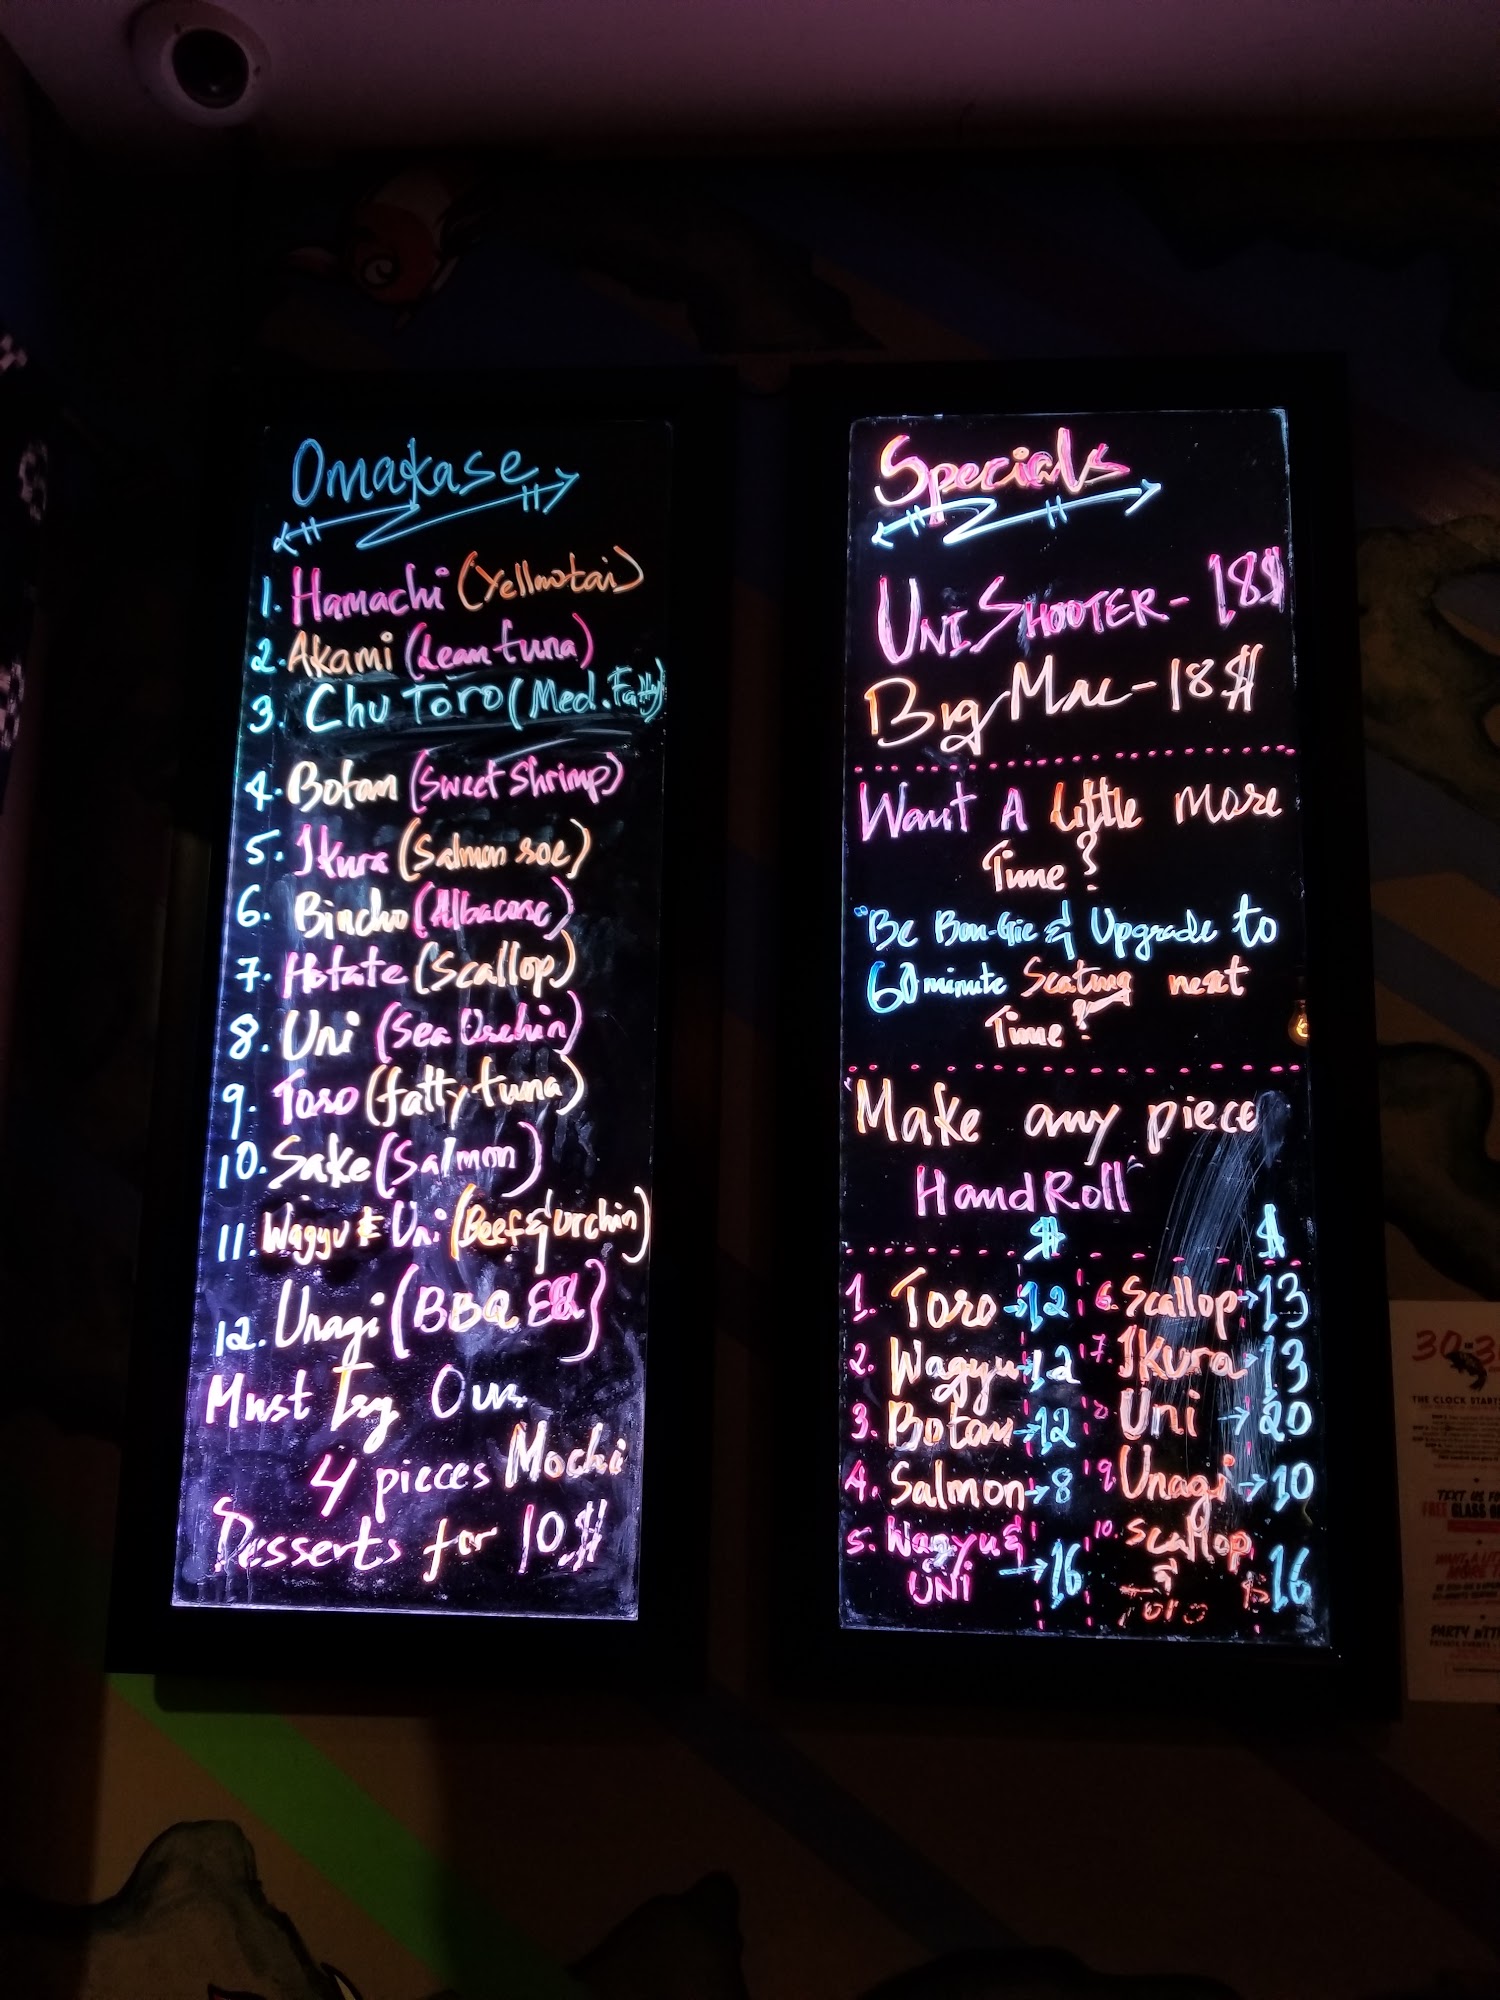 Omakase
1. Hamachi (Yellowtail)
2. Akami (Lean tuna)
3. Chu Toro (Med. Fatty)
4. Botan (Sweet Shrimp)
5. Ikura (Salmon roe)
6. Bincho (Albacore)
7. Hotate (Scallop)
8. Uni (Sea Urchin)
9. Toro (fatty tuna)
10. Sake (Salmon)
11. Wagyu & Uni (Beef & urchin)
12. Unagi (BBQ Eel)
Must Try Our
4 pieces Mochi
Desserts for 10.$
Specials
UNI SHOOTER - 18$
Big Mac - 18$
Want A Little More
Time?
"Be Bou-Gie & Upgrade to
60 minute Seating next
Time?"
"Make any piece
Hand Roll"
$ $
1. Toro → 12 6. Scallop → 13
2. Wagyu → 12 7. Ikura → 13
3. Botan → 12 8. Uni → 20
4. Salmon → 8 9. Unagi → 10
5. Wagyu & 10. Scallop
UNI → 16 & Toro 16
30
THE CLOCK STARTS
TEXT US FO
FREE GLASS
MORE T
PARTY WIT